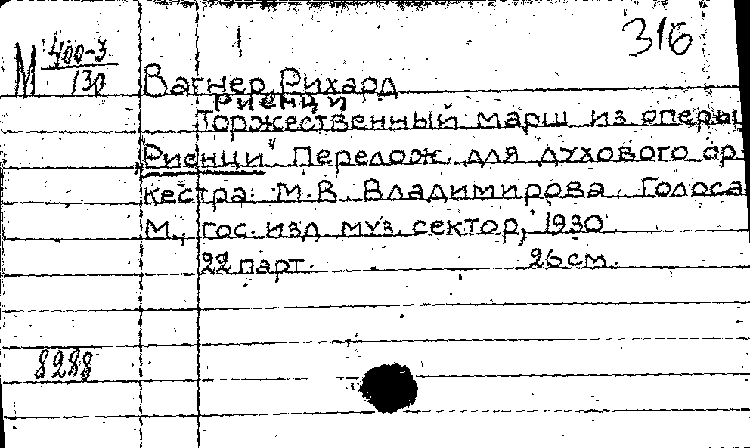 316
М 400-3
130
Вагнер, Рихард
Риенци
Торжественный марш из оперы
„Риенци". Перелож. для духового ор-
кестра М.В. Владимирова. Голоса
М., гос. изд. муз. сектор, 1930
22 парт. 26 см.
8288